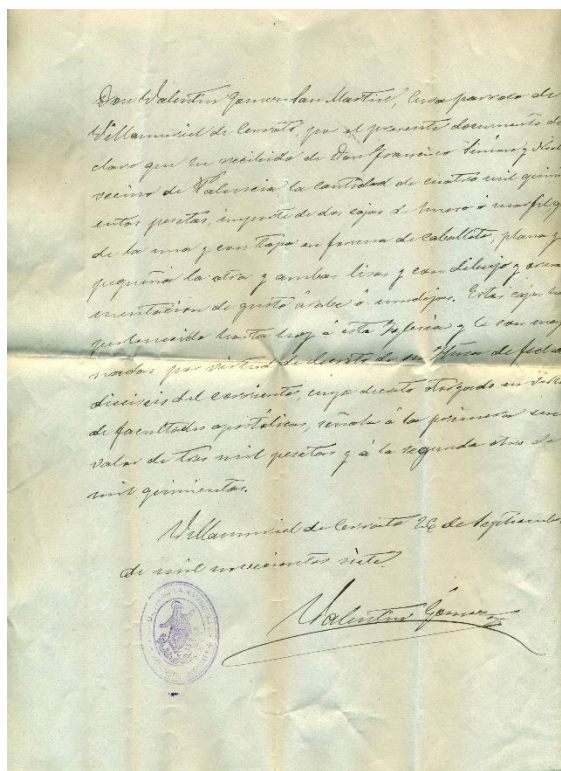 Don Valentin Gomez San Martin, Cura parroco de
Villamuriel de Cerrato, por el presente documento de
claro que he recibido de Don Francisco Simon y Niet
vecino de Palencia la Cantidad de cuatro mil quini
entos pesetas, importe de dos cajas de hueso ó marfil, g
de la una y con tapa en forma de caballete, plana y
pequeña la otra y ambas lisas y con dibujo y orna
mentacion de gusto árabe ó mudejar. Estas cajas han
pertenecido hasta hoy á esta Iglesia y le son enage
nadas por virtud de decreto de de fecha
dieciseis del corriente, cuyo decreto otorgado en
de facultades apostólicas, señala á la primera
valor de tres mil pesetas y á la segunda otro de
mil quinientos.
Villamuriel de Cerrato 26 de Septiembre
de mil novecientos siete.
Valentin Gómez